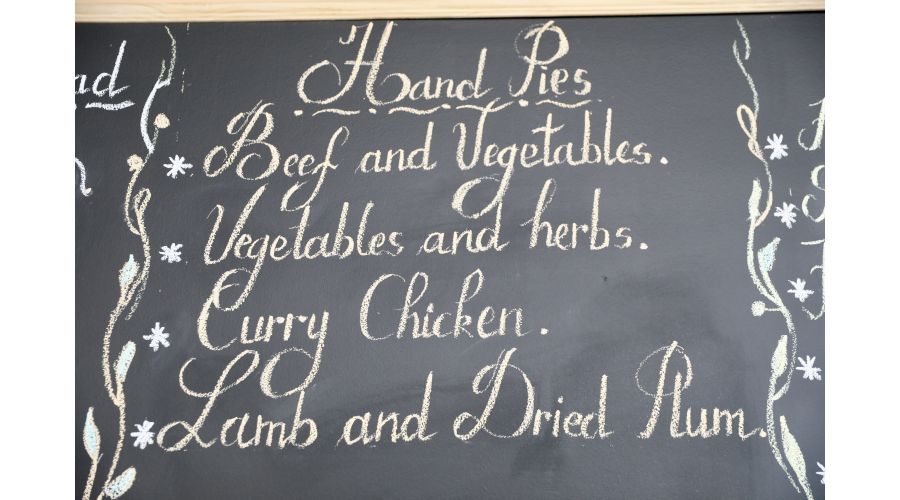 Hand Pies
Beef and Vegetables.
Vegetables and herbs.
Curry Chicken.
Lamb and Dried Plum.